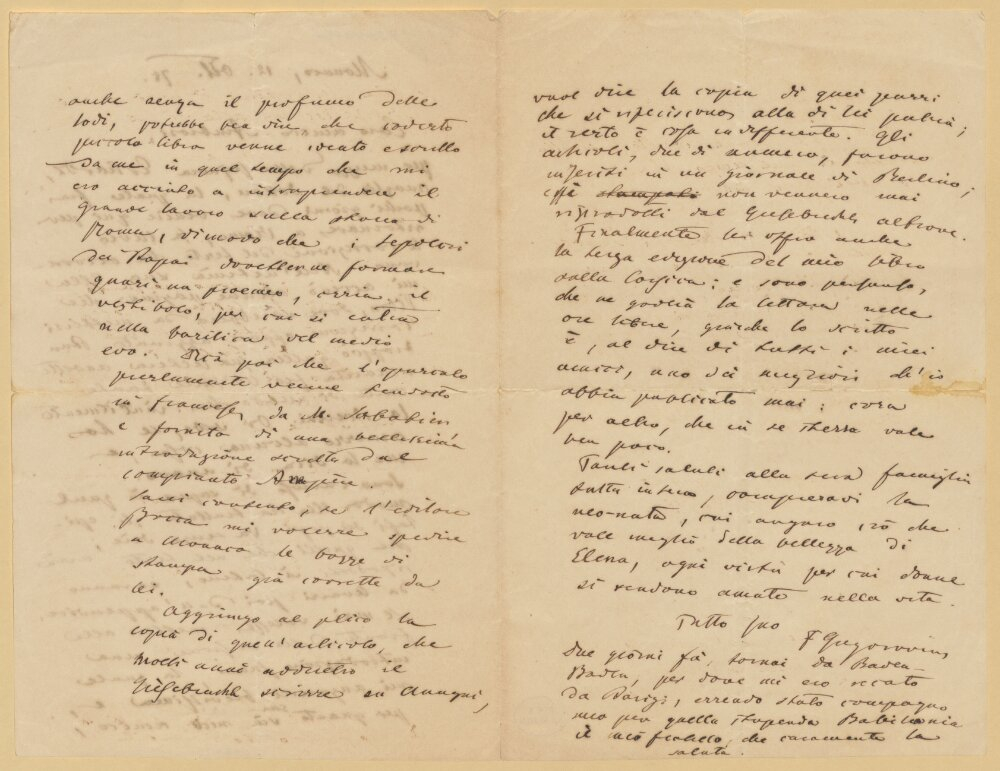 anche senza il profumo delle
lodi, potrebbe ben dire che codesto
piccolo libro venne ideato e scritto
da me in quel tempo che mi
ero accinto a intraprendere il
grande lavoro sulla storia di
Roma, dimodo che i sepolcri
dei Papi dovettero formare
quasi un proemio, ossia il
vestibolo, per cui si entra
nella basilica del medio
evo. Dirà poi che l'opuscolo
ultimamente venne tradotto
in francese da M. Sabatier
e fornito di una bellissima
introduzione scritta dal
compianto Ampère.
Sarei contento, se l'editore
Bocca mi volesse spedire
a Monaco le bozze di
stampa già corrette da
lei.
Aggiungo al plico la
copia di quell'articolo, che
molti anni addietro il
Giesebrecht scrisse su Anagni,
vuol dire la copia di quei passi
che si riferiscono alla di lei patria;
il resto è cosa indifferente. Gli
articoli, due di numero, furono
inseriti in un giornale di Berlino;
essi stampati non vennero mai
riprodotti dal Giesebrecht altrove.
Finalmente lei offro anche
la terza edizione del mio libro
sulla Corsica; e sono persuaso,
che ne godrà la lettura nelle
ore libere, giacché lo scritto
è, al dire di tutti i miei
amici, uno dei migliori ch'io
abbia publicato mai: cosa
per altro, che in se stessa vale
ben poco.
Tanti saluti alla sua famiglia
tutta intera, compresavi la
neonata, cui auguro ciò che
vale meglio della bellezza di
Elena, ogni virtù per cui donne
si rendono amate nella vita.
Tutto suo FGregorovius
Due giorni fà, tornai da Baden-
Baden, per dove mi ero recato
da Parigi, essendo stato compagno
mio per quella stupenda Babilonia
il mio fratello, che caramente la
saluta.